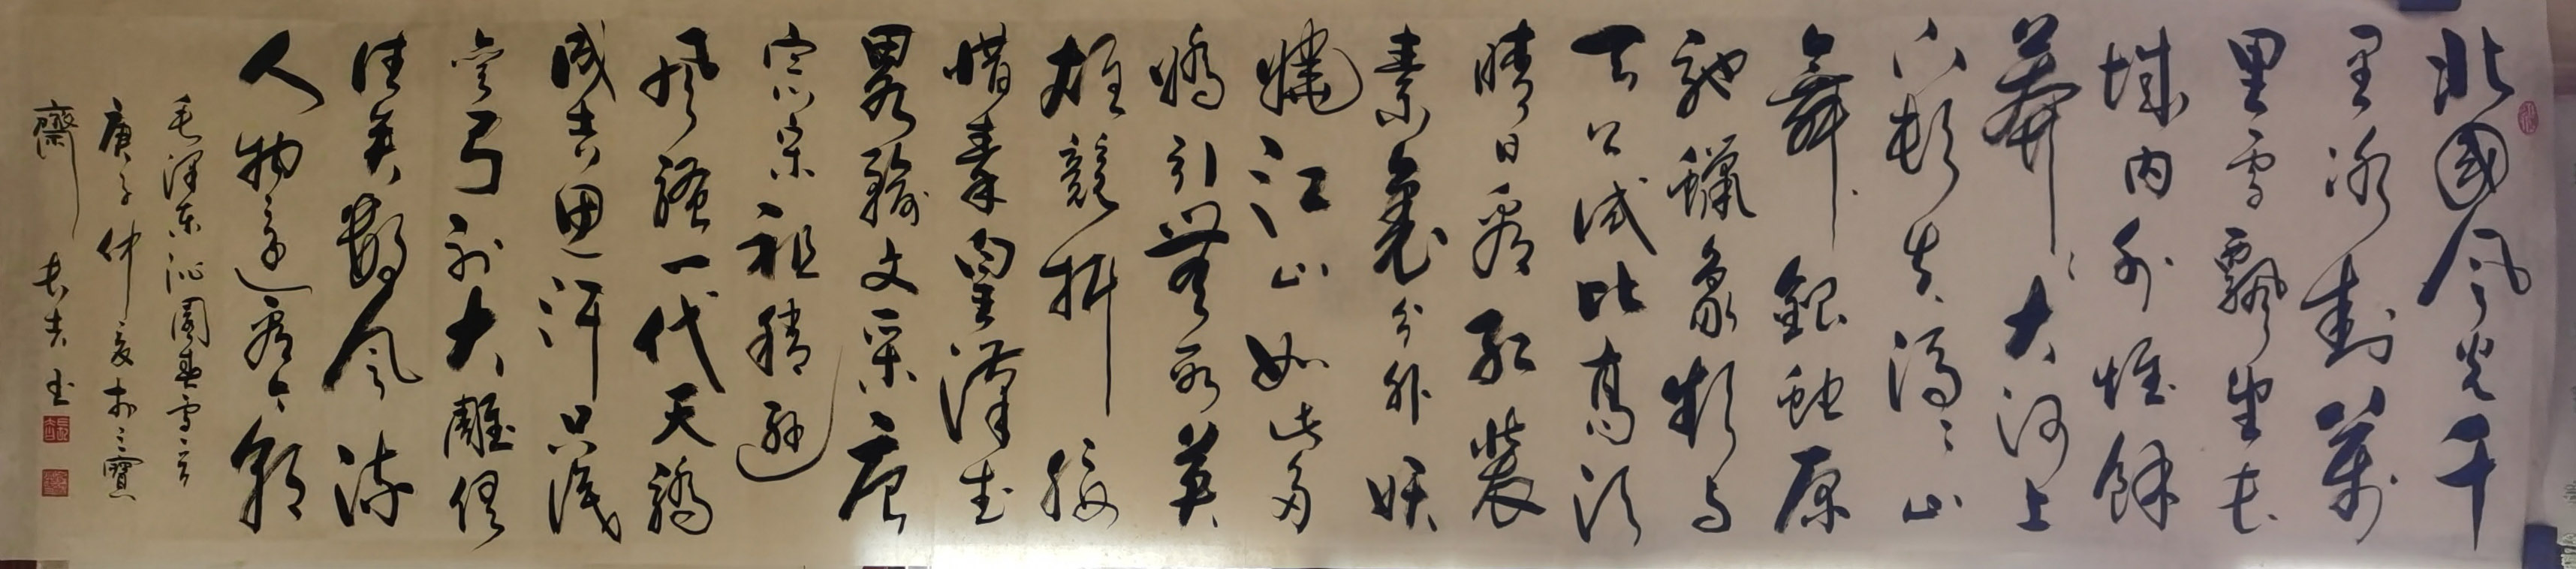 北國風光千
里冰封萬
里雪飄望长
城内外惟餘
莽々大河上
下頓失滔々山
舞銀蛇原
馳蠟象欲与
天公试比高须
晴日看红裝
素裹分外妖
娆江山如此多
嬌引無數英
雄競折腰
惜秦皇漢武
畧输文采唐
宗宋祖稍遜
風骚一代天骄
成吉思汗只识
彎弓射大雕俱
往矣數風流
人物還看今朝
毛泽东沁園春雪
庚子仲夏於三寶
齋 书